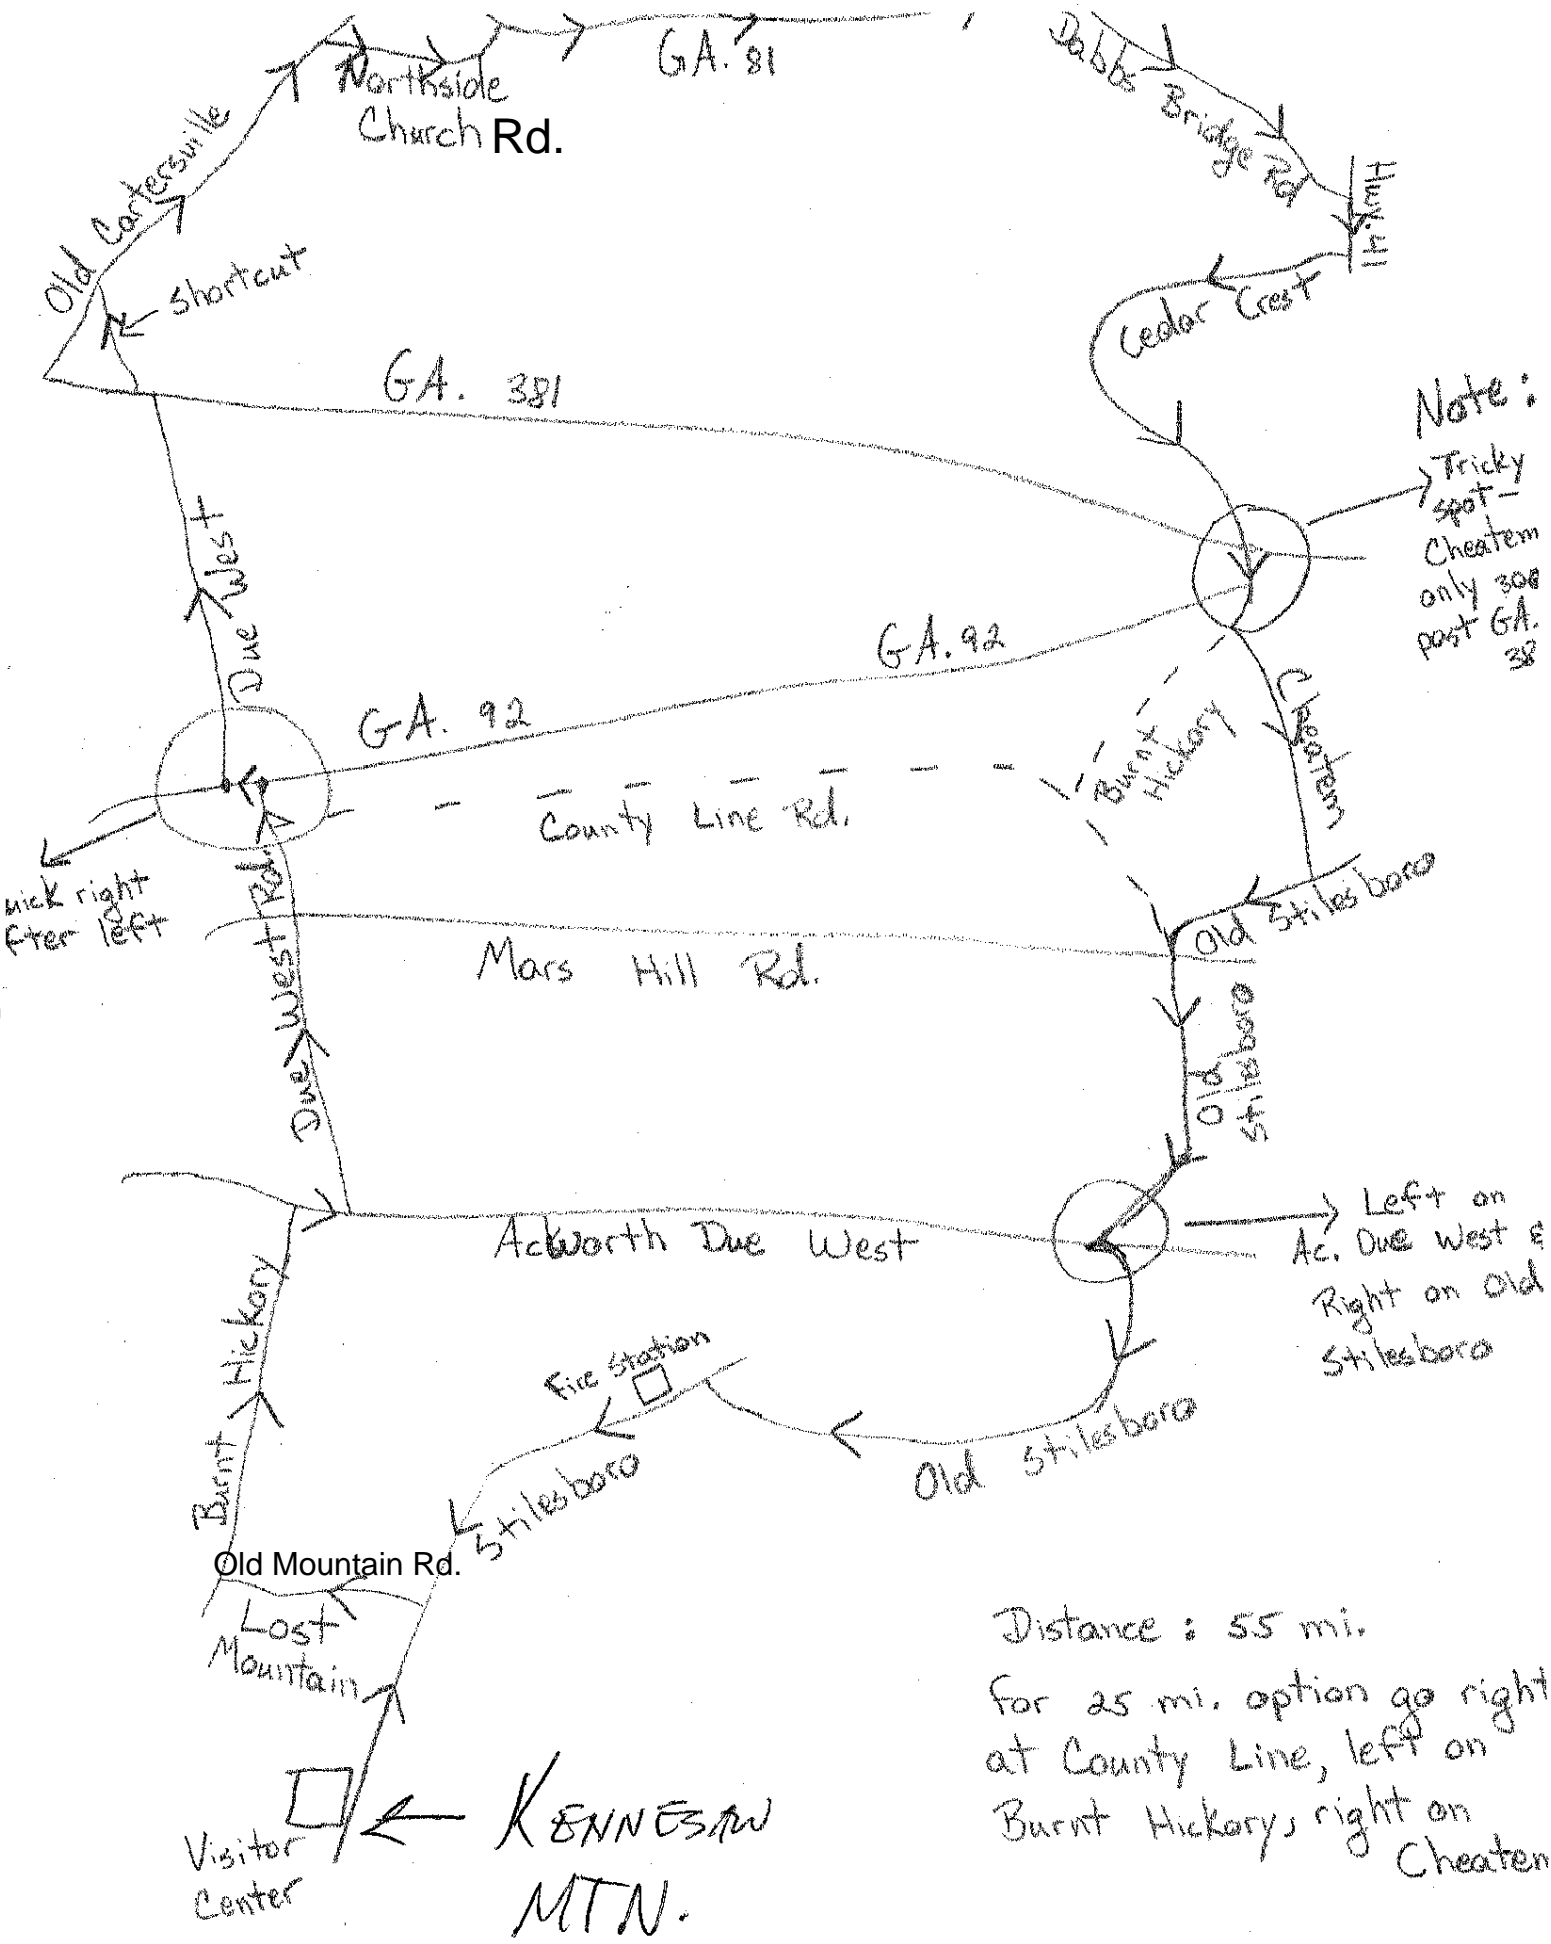 GA. 81
Northside
Church Rd.
Dabbs Bridge Rd
Hwy. 41
Old Cartersville
Shortcut
Cedar Crest
GA. 381
Note:
Tricky
spot-
Cheatem
only 300
past GA.
38
Due West
GA. 92
GA. 92
Burnt
Hickory
Cheatem
County Line Rd.
uick right
fter left
Due West Rd.
Old Stilesboro
Mars Hill Rd.
Old
Stilesboro
Ackworth Due West
Left on
Ac. Due West &
Right on Old
Stilesboro
Burnt Hickory
Fire Station
Stilesboro
Old Stilesboro
Old Mountain Rd.
Lost
Mountain
Distance: 55 mi.
for 25 mi. option go right
at County Line, left on
Burnt Hickory, right on
Cheatem
Visitor
Center
KENNESAW
MTN.